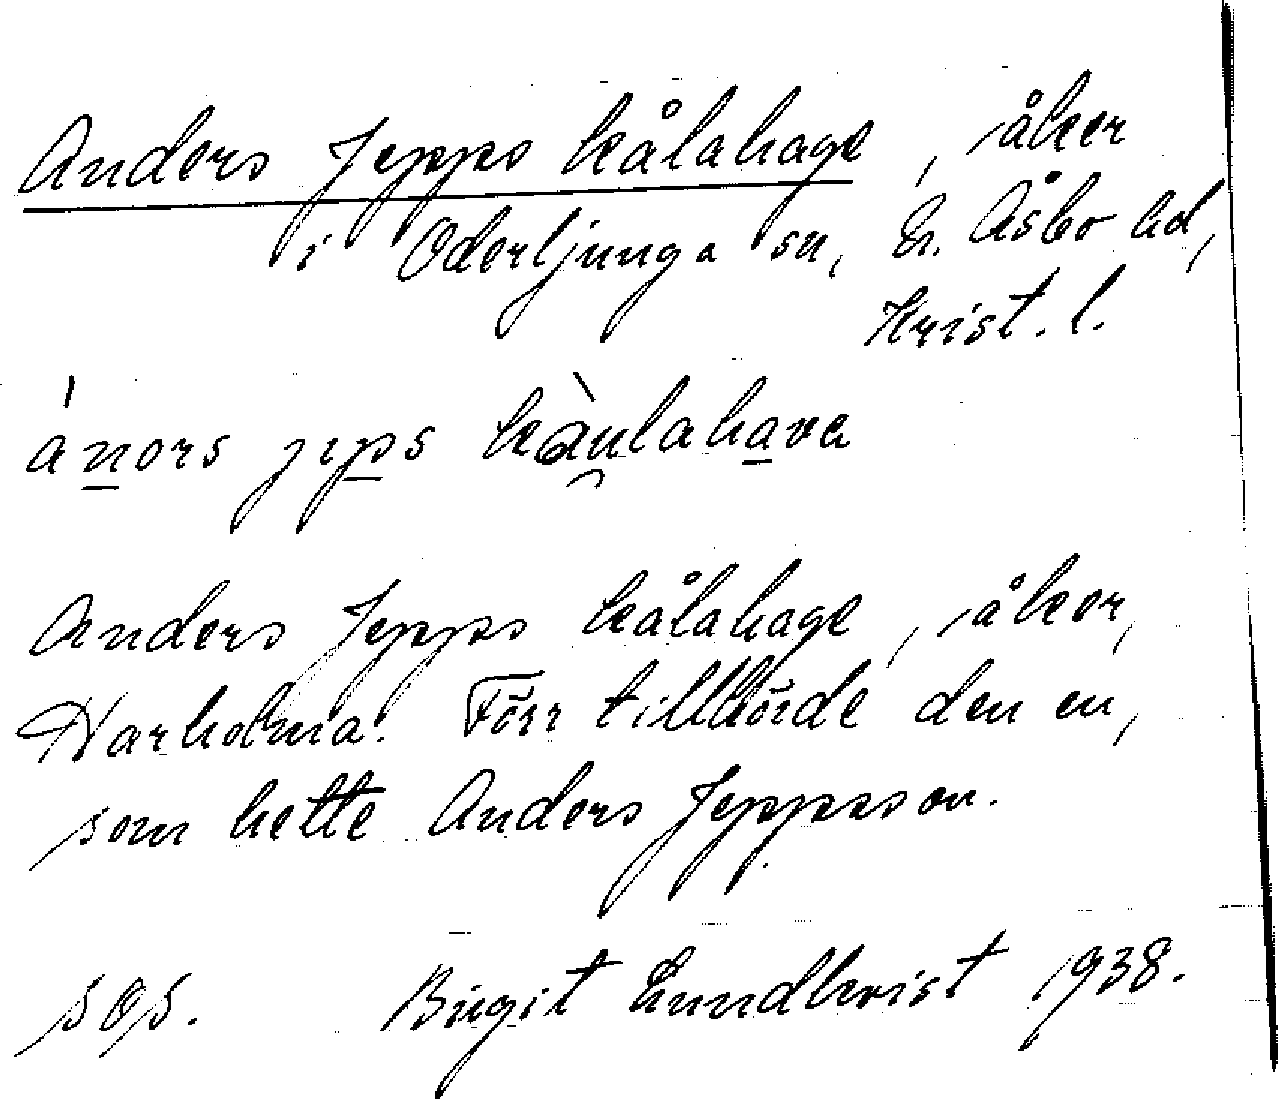 Anders Jepps kålahage, åker
i Oderljunga sn, N. Åsbo hd,
Krist. l.
ánors jeps kàulahava
Anders Jepps kålahage, åker,
Harholma. Förr tillhörde den en,
som hette Anders Jeppsson.
sOs. Birgit Lundkvist 1938.